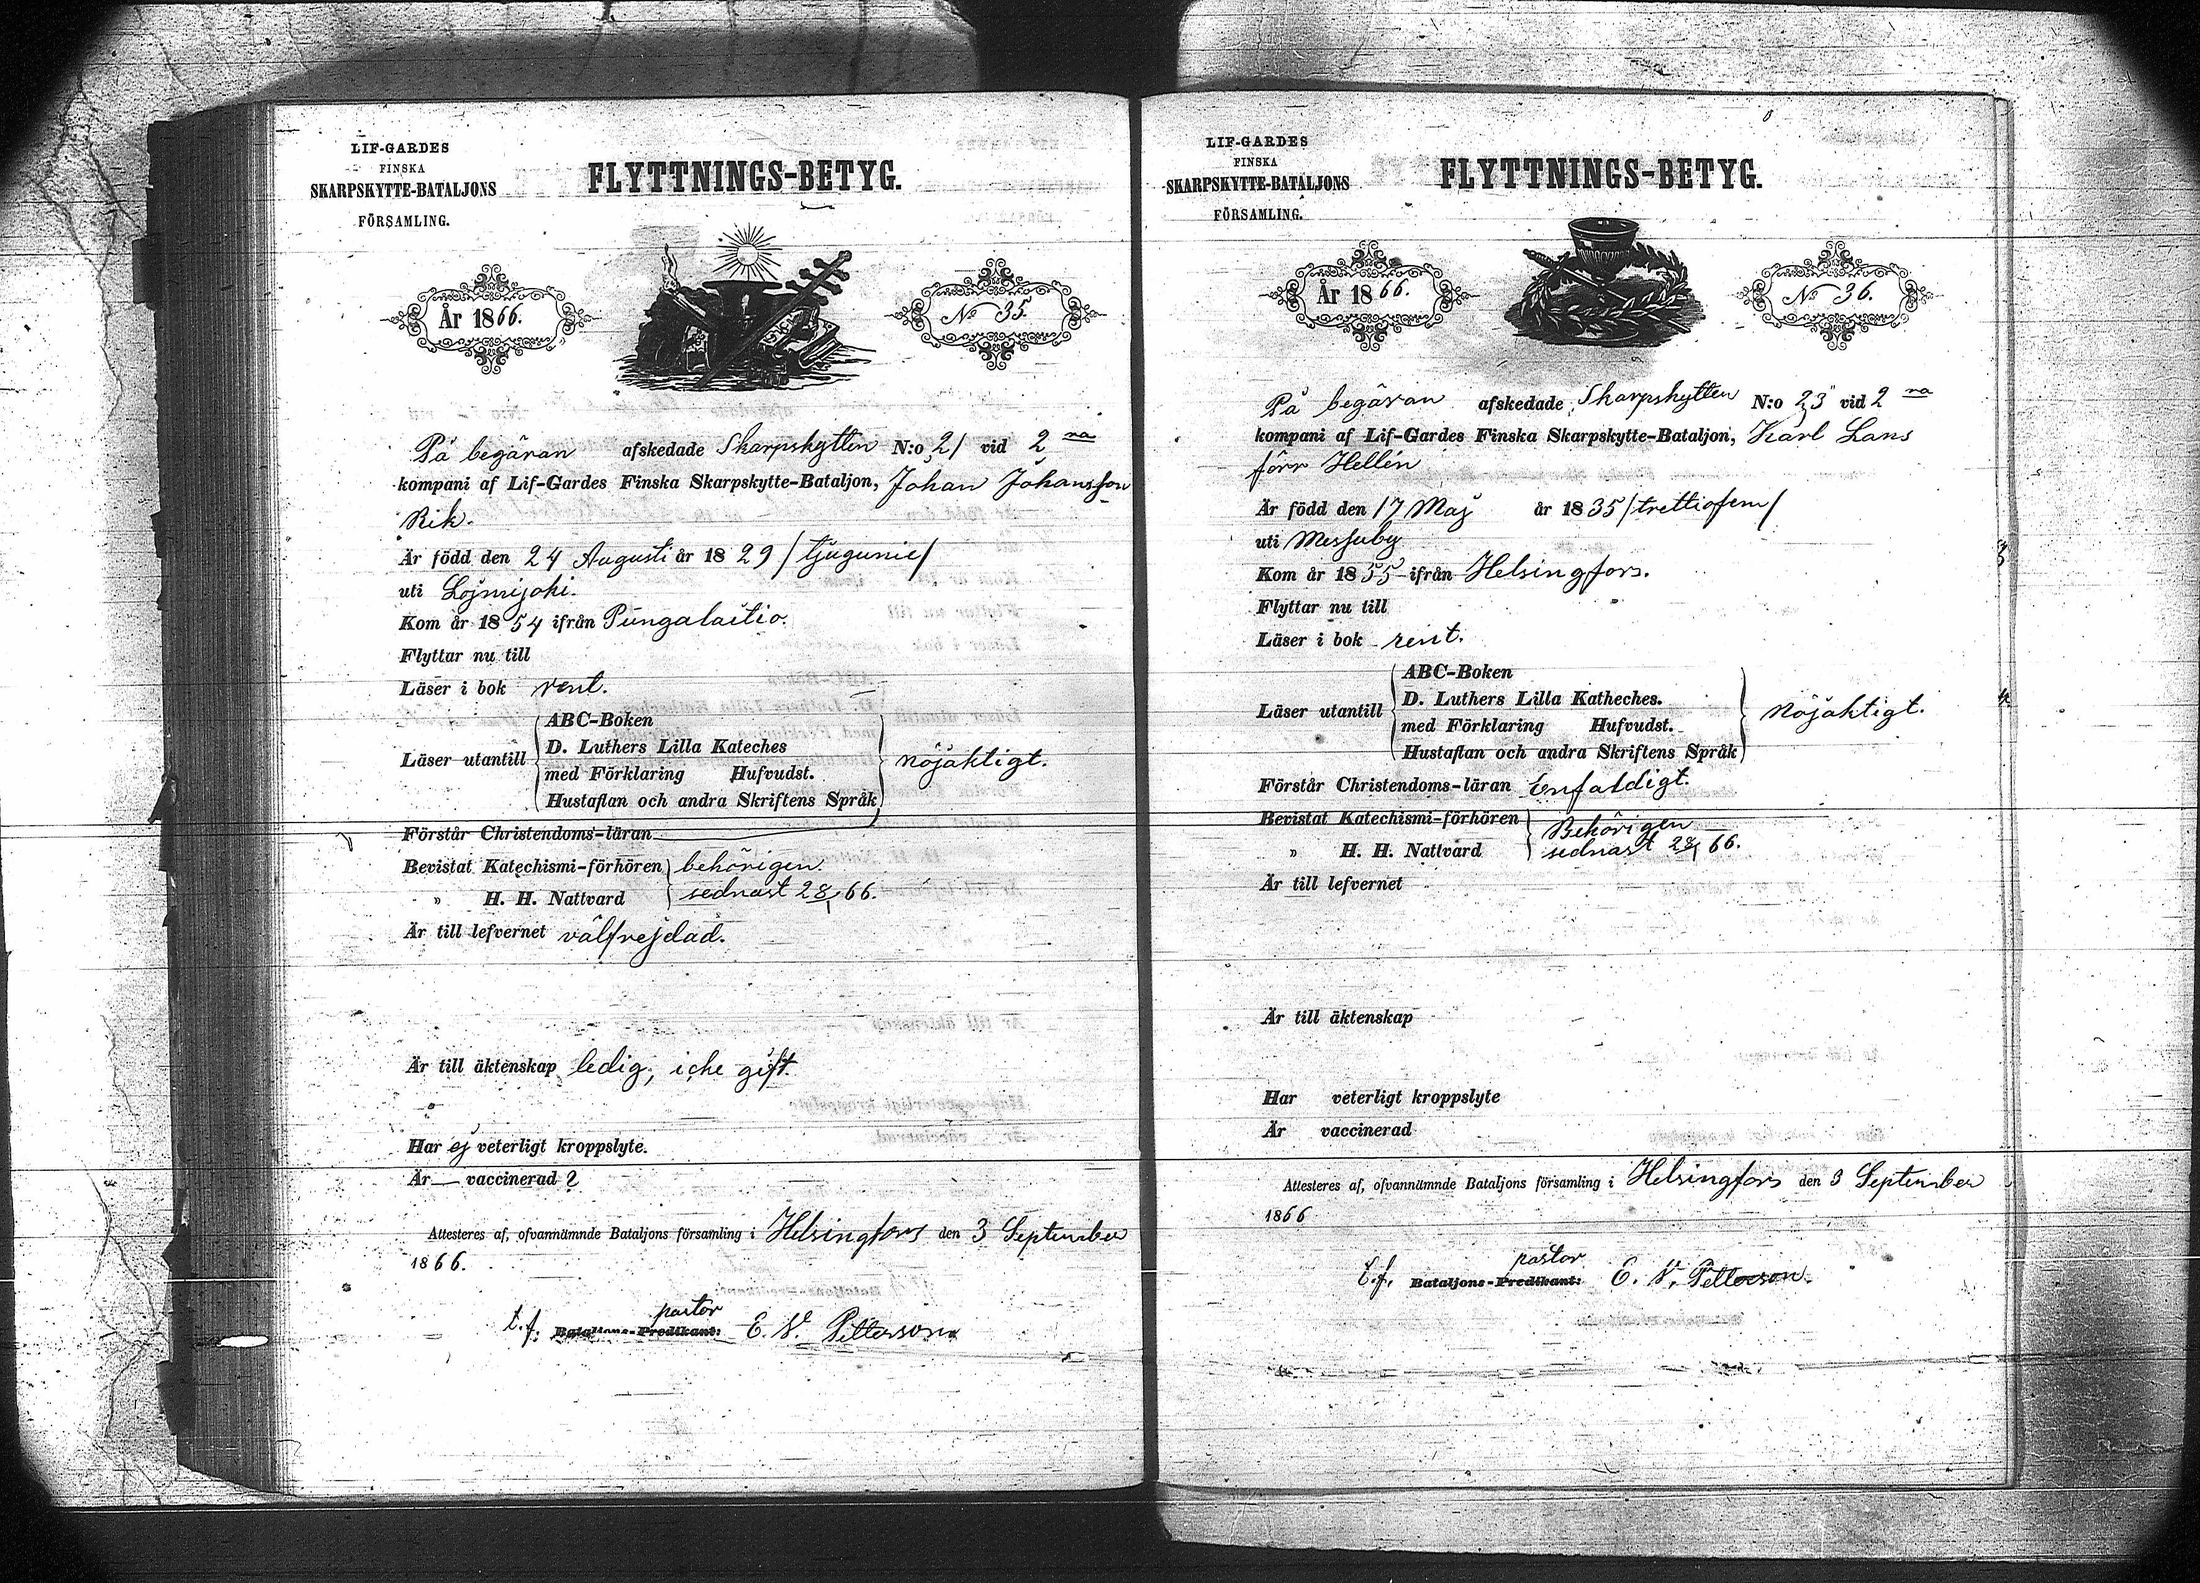 LIF-GARDES
FINSKA
SKARPSKYTTE-BATALJONS
FÖRSAMLING.
FLYTTNINGS-BETYG.
År 1866.
No 35.
På begäran afskedade Skarpskytten N:o 21 vid 2 ra
kompani af Lif-Gardes Finska Skarpskytte-Bataljon, Johan Johansson
Rik.
Är född den 24 Augusti år 1829 /tjugunie/
uti Lojmijoki.
Kom år 1854 ifrån Pungalaitio.
Flyttar nu till
Läser i bok rent.
Läser utantill
ABC-Boken
D. Luthers Lilla Kateches
med Förklaring Hufvudst.
Hustaflan och andra Skriftens Språk
nöjaktigt.
Förstår Christendoms-läran
Bevistat Katechismi-förhören behörigen.
" H. H. Nattvard sednast 28/1 66.
Är till lefvernet välfrejdad.
Är till äktenskap ledig, icke gift
Har ej veterligt kroppslyte.
Är — vaccinerad ?
Attesteres af, ofvannämnde Bataljons församling i Helsingfors den 3 September
1866.
pastor
t.f. Bataljons-Predikant: E. W. Petterson
LIF-GARDES
FINSKA
SKARPSKYTTE-BATALJONS
FÖRSAMLING.
FLYTTNINGS-BETYG.
År 1866.
No 36.
På begäran afskedade Skarpskytten N:o 23 vid 2 ra
kompani af Lif-Gardes Finska Skarpskytte-Bataljon, Karl Lans
förr Hellén
Är född den 17 Maj år 1835 /trettiofem/
uti Messuby
Kom år 1855 ifrån Helsingfors.
Flyttar nu till
Läser i bok rent.
Läser utantill
ABC-Boken
D. Luthers Lilla Katheches.
med Förklaring Hufvudst.
Hustaflan och andra Skriftens Språk
nöjaktigt.
Förstår Christendoms-läran Enfaldigt.
Bevistat Katechismi-förhören Behörigen
" H. H. Nattvard sednast 28/1 66.
Är till lefvernet
Är till äktenskap
Har veterligt kroppslyte
Är vaccinerad
Attesteres af, ofvannämnde Bataljons församling i Helsingfors den 3 September
1866
pastor
t.f. Bataljons-Predikant: E. W. Petterson.